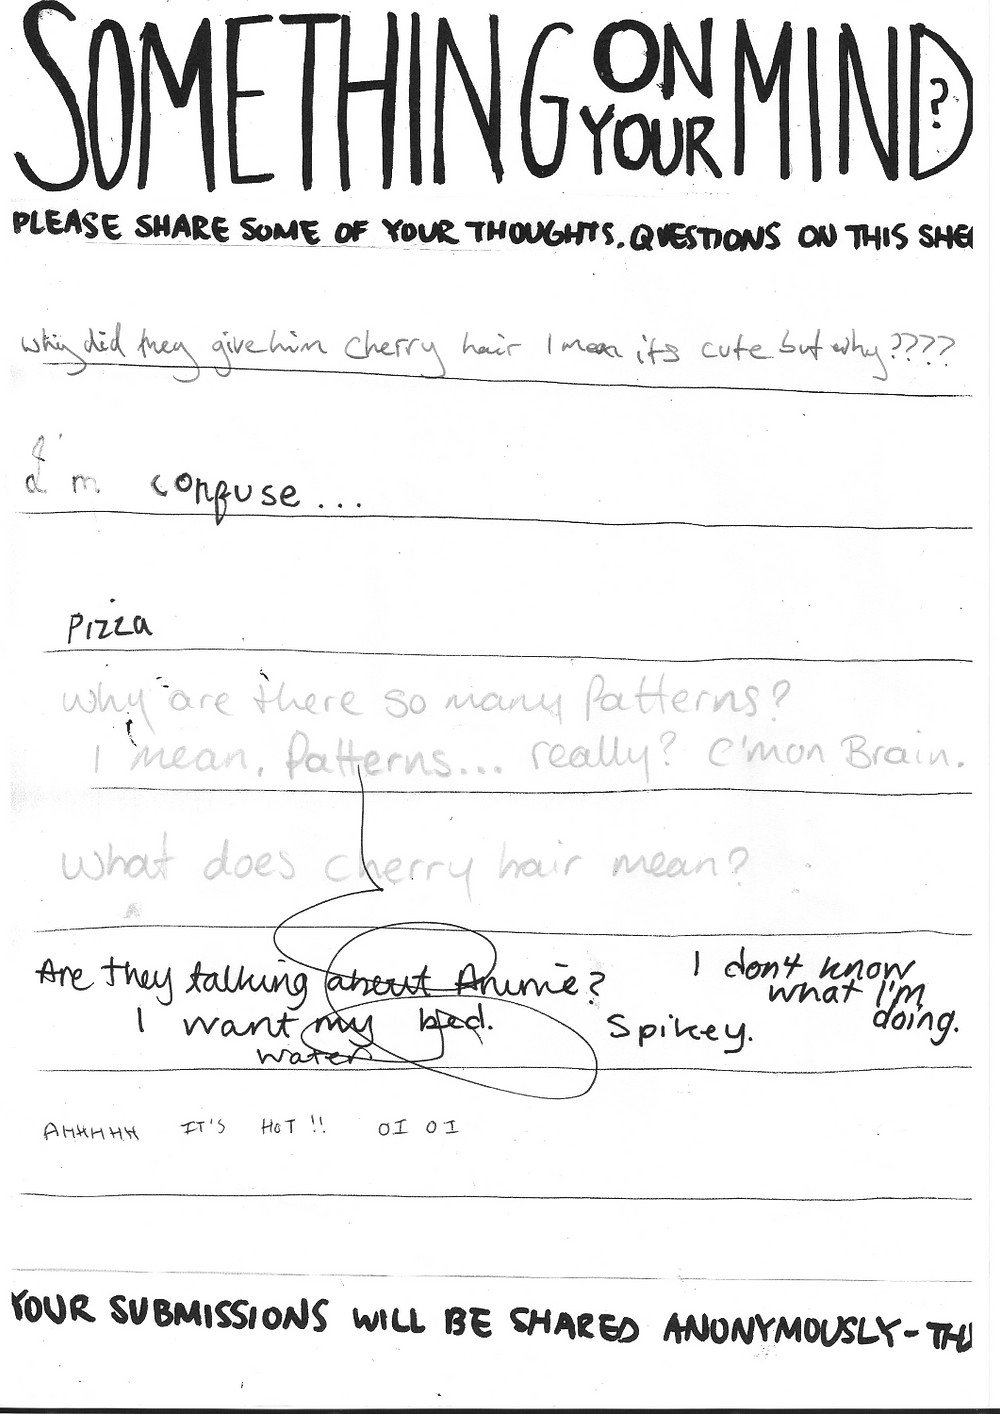 SOMETHING ON YOUR MIND?
PLEASE SHARE SOME OF YOUR THOUGHTS. QUESTIONS ON THIS SHE
Why did they give him cherry hair I mean its cute but why????
I'm confuse...
Pizza
why are there so many Patterns?
I mean, Patterns... really? C'mon Brain.
What does cherry hair mean?
Are they talking about Anime?
I don't know
what I'm
doing.
I want my bed.
water
Spikey.
AHHHHH IT'S HOT!! OI OI
YOUR SUBMISSIONS WILL BE SHARED ANONYMOUSLY-TH